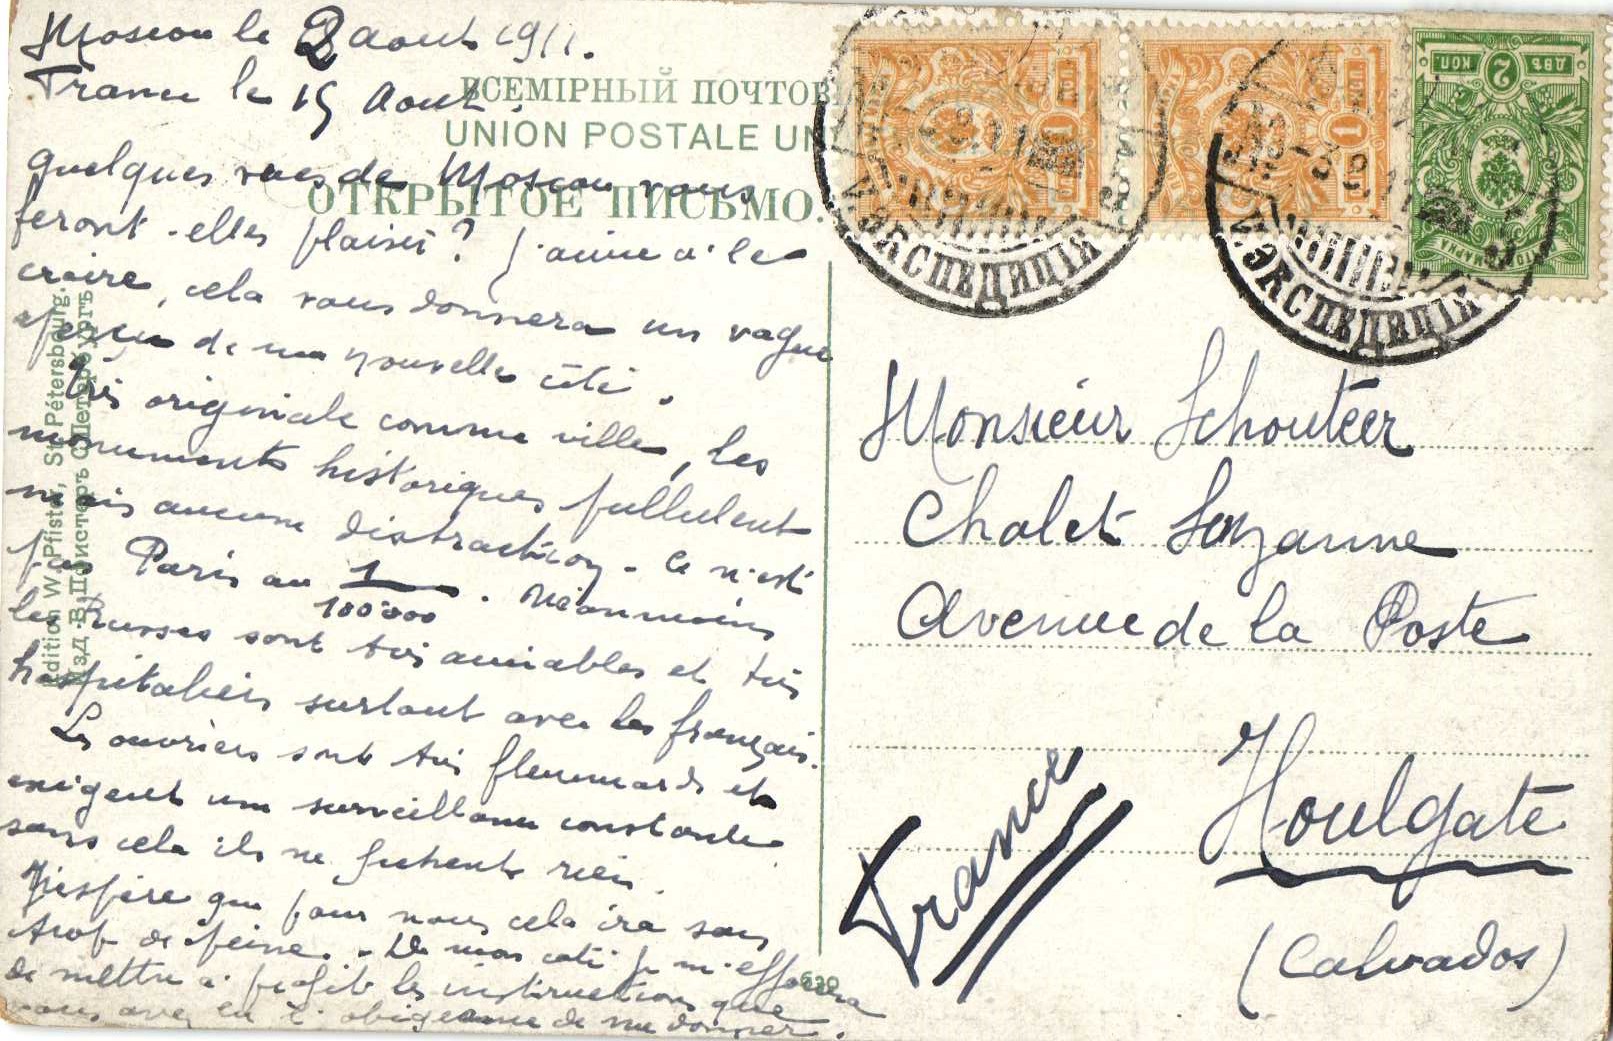 Moscou le 2 aout 1911.
France le 15 Aout.
ВСЕМІРНЫЙ ПОЧТОВ
UNION POSTALE UN
ОТКРЫТОЕ ПИСЬМО.
quelques vues de Moscou vous
feront-elles plaisir ? J'aime à le
croire, cela vous donnera un vague
aperçu de ma nouvelle cité.
Très originale comme ville, les
monuments historiques pullulent
mais aucune distraction. Ce n'est
pas Paris au 1/100000. Néanmoins
les Russes sont très aimables et très
hospitaliers surtout avec les français.
Les ouvriers sont très flemmards et
exigent une surveillance constante
sans cela ils ne fichent rien.
J'espère que pour nous cela ira sans
trop de peine. - De mon coté je m'efforcera
de mettre à profit les instructions que
vous avez eu l'obligeance de me donner.
Edition W. Pfister, St. Pétersbourg.
Изд. В. Пфистеръ С. Петербургъ
630
1
КОП.
1
КОП.
ДВѢ 2 КОП.
МАРКА
ЭКСПЕДИЦІЯ
ЭКСПЕДИЦІЯ
Monsieur Schouteer
Chalet Suzanne
Avenue de la Poste
Houlgate
(Calvados)
France